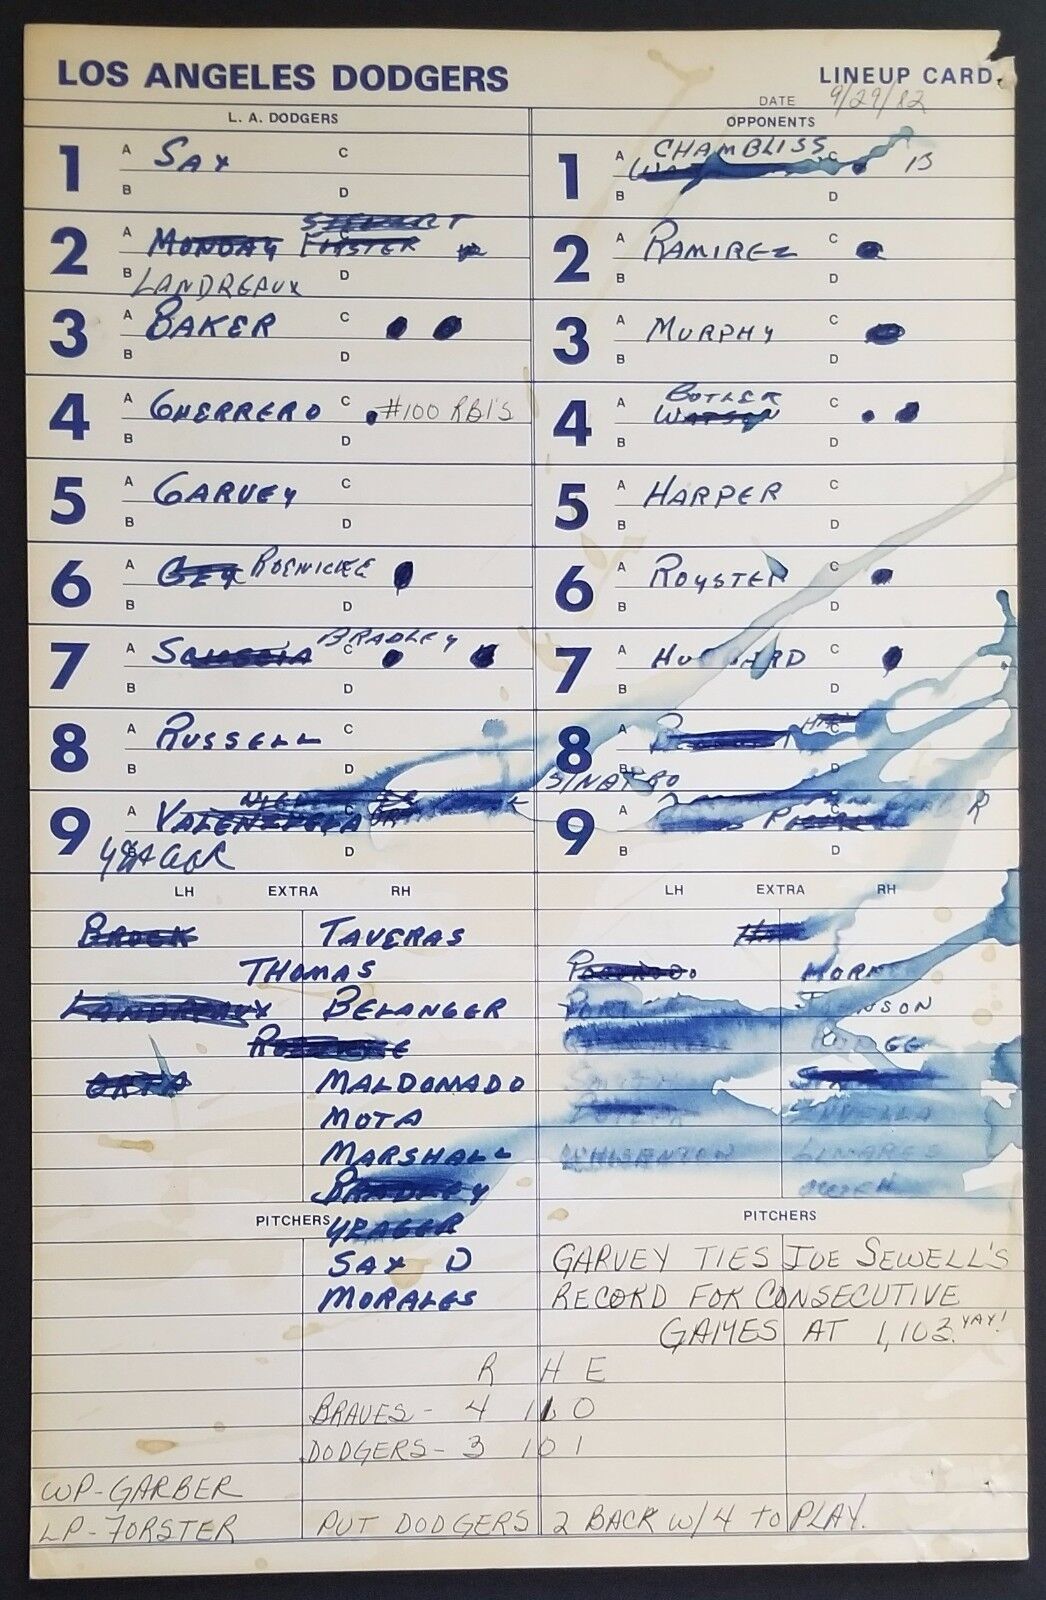 LOS ANGELES DODGERS
LINEUP CARD
DATE 9/29/82
L. A. DODGERS
OPPONENTS
1 A SAX C
B D
2 A MONDAY FORSTER STEWART C
B LANDREAUX D
3 A BAKER C
B D
4 A GUERRERO C #100 RBI'S
B D
5 A GARVEY C
B D
6 A CEY ROENICKE
B D
7 A SCIOSCIA BRADLEY C
B D
8 A RUSSELL C
B D
9 A VALENZUELA C
B YEAGER D
1 A CHAMBLISS C
B D
2 A RAMIREZ C
B D
3 A MURPHY C
B D
4 A BUTLER WATSON C
B D
5 A HARPER C
B D
6 A ROYSTER C
B D
7 A HUBBARD C
B D
8 A C
B SINATRO D
9 A C R
B D
LH EXTRA RH
BROCK TAVERAS
THOMAS
LANDREAUX BELANGER
ROENICKE
ORTA MALDONADO
MOTA
MARSHALL
BRADLEY
PITCHERS YEAGER
SAX D
MORALES
LH EXTRA RH
POCOROBA HORNER
JOHNSON
BUTLER
WHISENTON LINARES
OWEN
PITCHERS
GARVEY TIES JOE SEWELL'S
RECORD FOR CONSECUTIVE
GAMES AT 1,103. YAY!
R H E
BRAVES - 4 11 0
DODGERS - 3 10 1
WP-GARBER
LP-FORSTER PUT DODGERS 2 BACK W/4 TO PLAY.